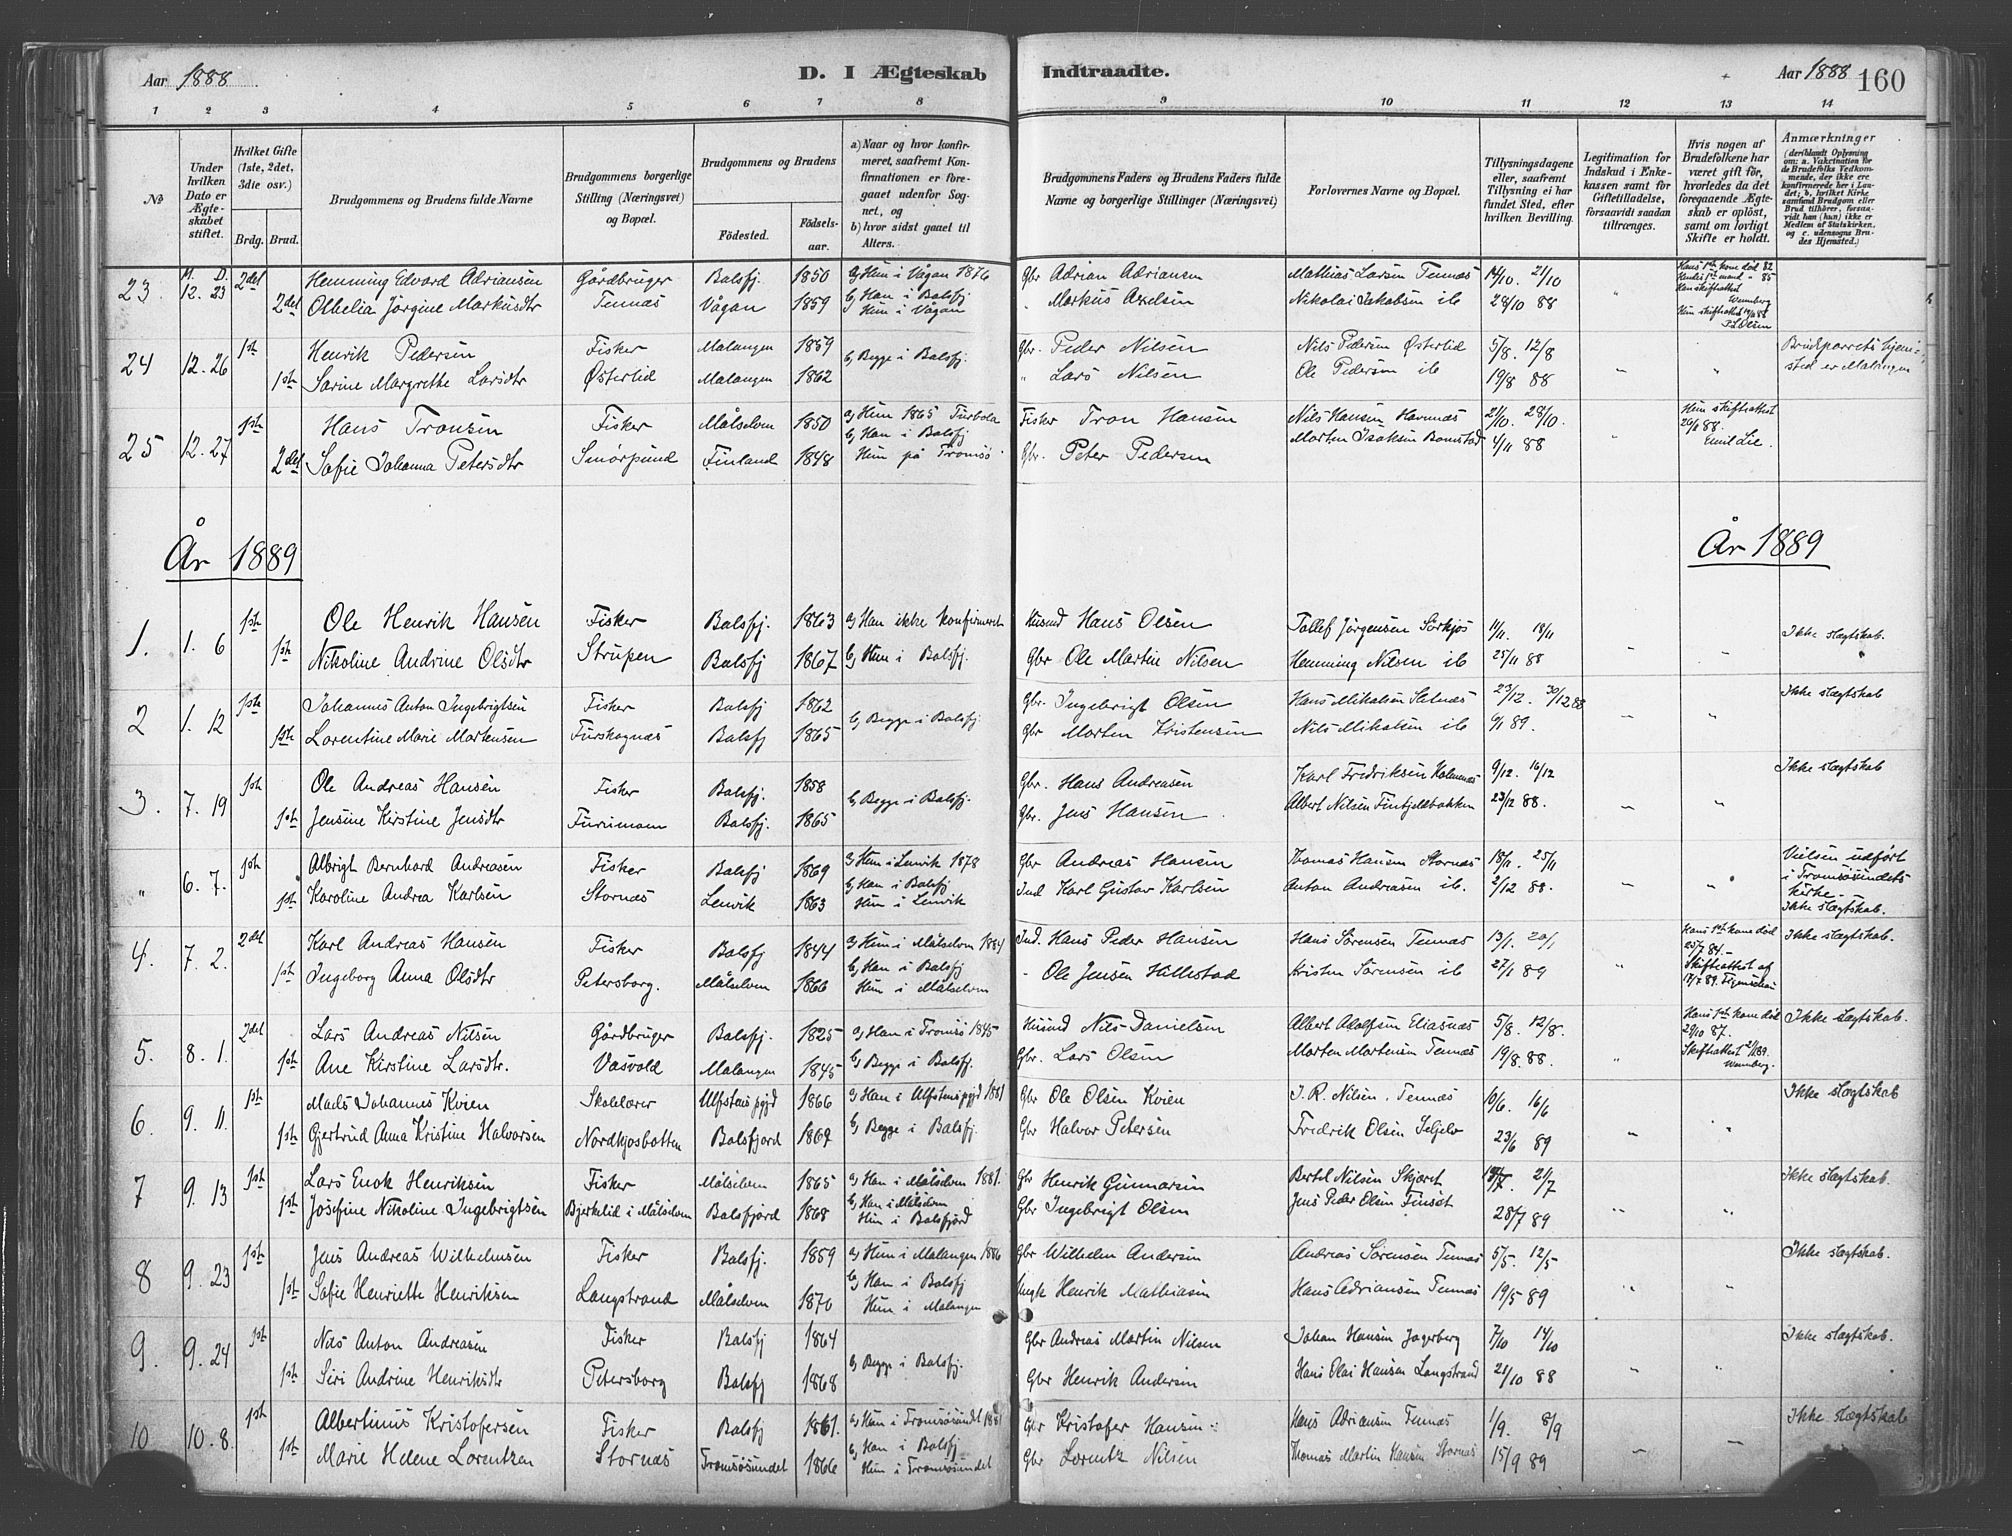 Aar 1888
D. I Ægteskab
Indtraadte.
Aar 1888 160
1 2 3 4 5 6 7 8 9 10 11 12 13 14
No
Under hvilken Dato er Ægteskabet stiftet.
Hvilket Gifte (1ste, 2det, 3die osv.)
Brdg. Brud.
Brudgommens og Brudens fulde Navne
Brudgommens borgerlige Stilling (Næringsvei) og Bopæl.
Brudgommens og Brudens
Fødested. Fødselsaar.
a) Naar og hvor konfirmeret, saafremt Konfirmationen er foregaaet udenfor Sognet, og
b) hvor sidst gaaet til Alters.
Brudgommens Faders og Brudens Faders fulde Navne og borgerlige Stillinger (Næringsvei)
Forlovernes Navne og Bopæl.
Tillysningsdagene eller, saafremt Tillysning ei har fundet Sted, efter hvilken Bevilling.
Legitimation for Indskud i Enkekassen samt for Giftetilladelse, forsaavidt saadan tiltrænges.
Hvis nogen af Brudefolkene har været gift før, hvorledes da det foregaaende Ægteskab er opløst, samt om lovligt Skifte er holdt.
Anmærkninger (deriblandt Oplysning om: a. Vakcination for de Brudefolks Vedkommende, der ikke ere konfirmerede her i Landet; b. hvilket Kirkesamfund Brudgom eller Brud tilhører, forsaavidt han (hun) ikke er Medlem af Statskirken, og c. udensogns Brudes Hjemsted.)
M. D.
23. 12. 23 2det Hemming Edvard Adriansen Gårdbruger Balsfj. 1850 a) Hun i Vågan 1876 Gbr Adrian Adriansen Mathias Larsen Tennæs 14/10. 21/10 Hans 1ste kone død 82
2det Olhelia Jørgine Markusdtr Tennæs Vågan 1859 b) Han i Balsfj Hun i Vågan " Markus Axelsen Nikolai Jakobsen ib 28/10 88 " Hendes 1ste mand " 85
Han skifteattest Wennberg
Hun skifteattest P. L. Olsen
24 12. 26 1ste Henrik Pedersen Fisker Malangen 1859 b) Begge i Balsfj. Gbr. Peder Nilsen Nils Pedersen Østerlid 5/8. 12/8 Brudparrets hjemsted er Malangen
1ste Sarine Margrethe Larsdtr Østerlid Malangen 1862 " Lars Nilsen Ole Pedersen ib 19/8 88 " "
25 12. 27 1ste Hans Tronsen Fisker Målselven 1850 a) Hun 1865 Turbola Fisker Tron Hansen Nils Hansen Havnnæs 21/10. 28/10. Hun skifteattest 26/11 88. Emil Lie.
2det Sofie Johanna Petersdtr Smørpund Finland 1848 b) Han i Balsfj Hun på Tromsø Gbr. Peter Pedersen Morten Isaksen Bomstad 4/11 88 "
År 1889 År 1889
1. 1. 6 1ste Ole Henrik Hansen Fisker Balsfj. 1863 a) Han ikke konfirmeret Husmd Hans Olsen Tollef Jørgensen Sørkjos 11/11. 18/11 Ikke slægtskab.
1ste Nikoline Andrine Olsdtr Strupen Balsfj 1867 b) Hun i Balsfj. Gbr Ole Martin Nilsen Hemming Nilsen ib 25/11 88 " "
2 1. 12 1ste Johannes Anton Ingebrigtsen Fisker Balsfj 1862 b) Begge i Balsfj Gbr. Ingebrigt Olsen Hans Mikalsen Selnæs 23/12. 30/12 88 Ikke slægtskab
1ste Lorentine Marie Mortensen Furskognæs Balsfj 1865 Gbr Morten Kristensen Nils Mikalsen ib 6/1 89. " "
3. 7. 19 1ste Ole Andreas Hansen Fisker Balsfj. 1858 b) Begge i Balsfj. Gbr. Hans Andreasen Karl Fredriksen Holmnæs 9/12. 16/12 Ikke slægtskab
1ste Jensine Kirstine Jensdtr Furumom Balsfj. 1865 Gbr. Jens Hansen Albert Nilsen Fintjeldbakken 23/12 88. " "
" 6. 7. 1ste Albrigt Bernhard Andreasen Fisker Balsfj 1869 a) Hun i Lenvik 1878 Gbr Andreas Hansen Thomas Hansen Stornæs 18/11. 25/11 Vielsen udført i Tromsøsundets kirke.
1ste Karoline Andrea Karlsen Stornæs Lenvik 1863 b) Han i Balsfj Hun i Lenvik Ind Karl Gustav Karlsen Anton Andreasen ib. 2/12 88. " " Ikke slægtskab.
4. 7. 2. 2det Karl Andreas Hansen Fisker Balsfj 1844 a) Hun i Målselven 1884 Ind. Hans Peder Hansen Hans Sørensen Tennæs 13/1. 20/1 Hans 1ste kone død 25/7 84. Ikke slægtskab.
1ste Ingeborg Anna Olsdtr Petersborg. Målselven 1866 b) Han i Balsfj Hun i Målselven - Ole Jensen Hillestad Kristen Sørensen ib 27/1 89 " Skifteattest af 17/7 89.
5. 8. 1. 2det Lars Andreas Nilsen Gårdbruger Balsfj. 1825 a) Han i Tromsø 1845 Husmd Nils Danielsen Albert Adolfsen Eliasnæs 5/8. 12/8. Hans 1ste kone død 29/10 87. Ikke slægtskab.
1ste Ane Kirstine Larsdtr. Vasvold Malangen 1845 b) Begge i Balsfj. Gbr. Lars Olsen Morten Mortensen Tennæs 19/8. 88. " Skifteattest Wennberg.
6. 9. 11. 1ste Mads Johannes Kvien Skolelærer Ulfstens pgjd 1866 a) Han i Ulfstens pgjd 1881 Gbr Ole Olsen Kvien J. R. Nilsen. Tennæs 10/6. 16/6 Ikke slægtskab
1ste Gjertrud Anna Kristine Halvorsen Nordkjosbotten Balsfjord 1867 b) Begge i Balsfj. Gbr Halvor Petersen Fredrik Olsen Seljelv 23/6 89 " "
7 9. 13 1ste Lars Enok Henriksen Fisker Målselven 1865 a) Han i Målselven 1881. Gbr Henrik Gunnarsen Bertel Nilsen Skjæret 14/7. 21/7 Ikke slægtskab.
1ste Josefine Nikoline Ingebrigtsen Bjerkelid i Målselven Balsfjord 1868 b) Han i Målselven Hun i Balsfjord Gbr Ingebrigt Olsen Jens Peder Olsen Finsæt 28/7 89 " "
8 9. 23 1ste Jens Andreas Wilhelmsen Fisker Balsfj. 1859 a) Hun i Malangen 1886 Gbr Wilhelm Andersen Andreas Sørensen Tennæs 5/5. 12/5 Ikke slægtskab.
1ste Sofie Henriette Henriksen Langstrand Målselven 1870 b) Han i Balsfj Hun i Malangen Henrik Mathiasen Hans Adriansen Tennæs 19/5 89 " "
9. 9. 24 1ste Nils Anton Andreasen Fisker Balsfj 1864 a) Begge i Balsfj. Gbr Andreas Martin Nilsen Johan Hansen Jagerberg 7/10 14/10 Ikke slægtskab.
1ste Siri Andrine Henriksdtr Petersborg Balsfj 1868 Gbr Henrik Andersen Hans Olai Hansen Langstrand 21/10 88 " "
10 10. 8. 1ste Albertinus Kristofersen Fisker Balsfj 1861. a) Hun i Tromsøsundet 1881 Gbr Kristofer Hansen Hans Adriansen Tennæs 1/9. 8/9 Ikke slægtskab
1ste Marie Helene Lorentzen Stornæs Tromsøsundet 1866 b) Han i Balsfj Hun i Tromsøsundet Gbr Lorentz Nilsen Thomas Martin Hansen Stornæs 15/9 89 " "